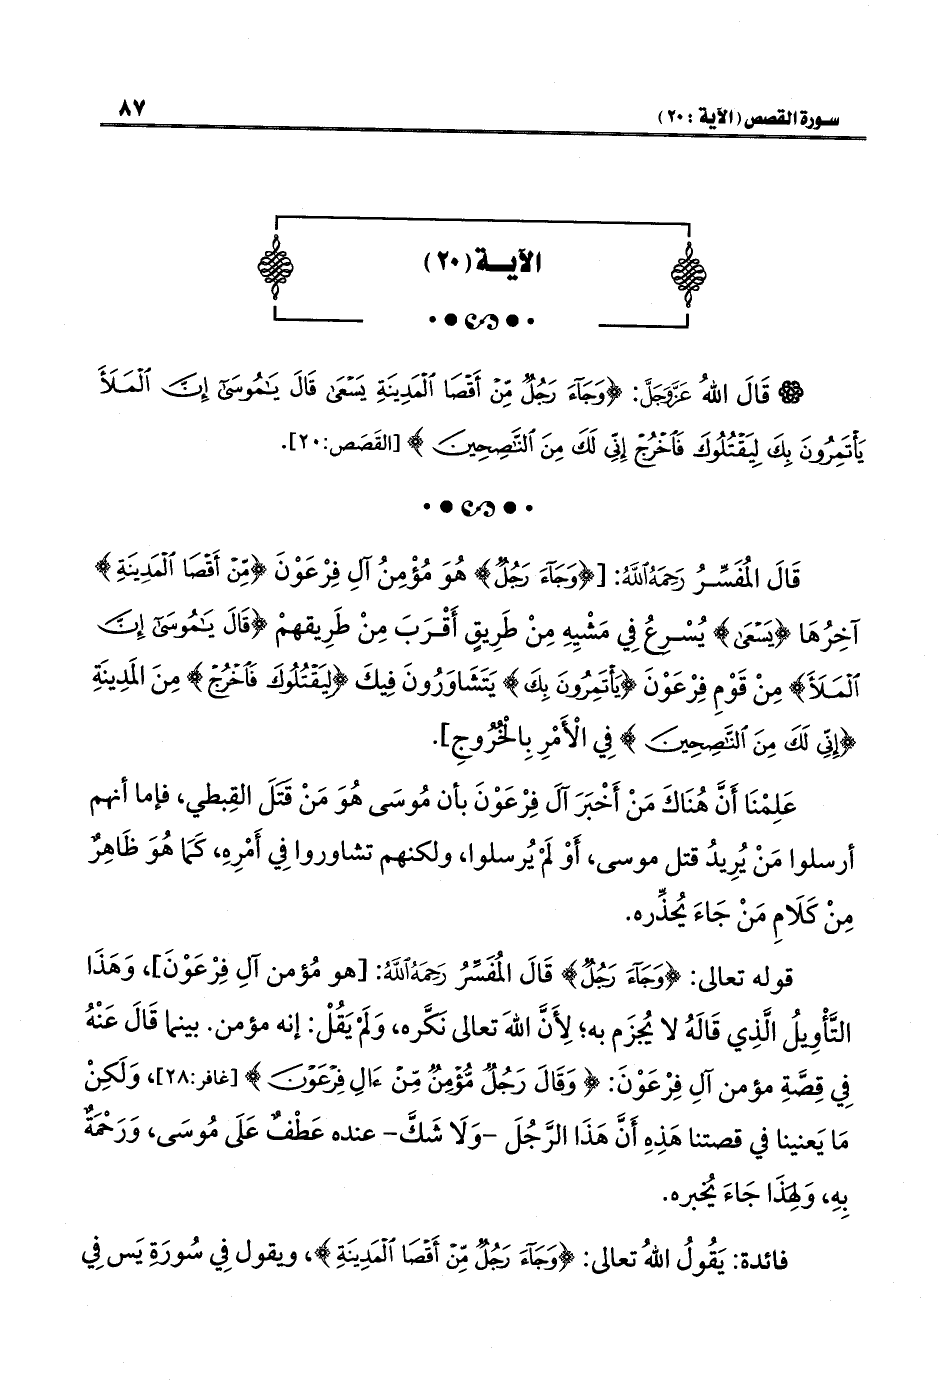 سورة القصص (الآية : ٢٠)
٨٧
الآيــة (٢٠)
قَالَ اللهُ عَزَّوَجَلَّ: ﴿وَجَآءَ رَجُلٌ مِّنْ أَقْصَا ٱلْمَدِينَةِ يَسْعَىٰ قَالَ يَـٰمُوسَىٰٓ إِنَّ ٱلْمَلَأَ
يَأْتَمِرُونَ بِكَ لِيَقْتُلُوكَ فَٱخْرُجْ إِنِّى لَكَ مِنَ ٱلنَّـٰصِحِينَ ﴾ [القَصَص:٢٠].
قَالَ المُفَسِّرُ رَحِمَهُ ٱللَّهُ: [﴿وَجَآءَ رَجُلٌ﴾ هُوَ مُؤْمِنُ آلِ فِرْعَوْنَ ﴿مِّنْ أَقْصَا ٱلْمَدِينَةِ ﴾
آخِرُهَا ﴿يَسْعَىٰ﴾ يُسْرِعُ فِي مَشْيِهِ مِنْ طَرِيقٍ أَقْرَبَ مِنْ طَرِيقِهِمْ ﴿قَالَ يَـٰمُوسَىٰٓ إِنَّ
ٱلْمَلَأَ﴾ مِنْ قَوْمِ فِرْعَوْنَ ﴿يَأْتَمِرُونَ بِكَ﴾ يَتَشَاوَرُونَ فِيكَ ﴿لِيَقْتُلُوكَ فَٱخْرُجْ﴾ مِنَ المَدِينَةِ
﴿إِنِّى لَكَ مِنَ ٱلنَّـٰصِحِينَ ﴾ فِي الْأَمْرِ بِالْخُرُوجِ].
عَلِمْنَا أَنَّ هُنَاكَ مَنْ أَخْبَرَ آلَ فِرْعَوْنَ بأن مُوسَى هُوَ مَنْ قَتَلَ القِبطي، فإما أنهم
أرسلوا مَنْ يُرِيدُ قتل موسى، أَوْ لَمْ يُرسلوا، ولكنهم تشاوروا فِي أَمْرِهِ، كَمَا هُوَ ظَاهِرٌ
مِنْ كَلَامِ مَنْ جَاءَ يُحذِّره.
قوله تعالى: ﴿وَجَآءَ رَجُلٌ﴾ قَالَ المُفَسِّرُ رَحِمَهُ ٱللَّهُ: [هو مُؤمن آلِ فِرْعَوْنَ]، وَهَذَا
التَّأْوِيلُ الَّذِي قَالَهُ لا يُجزَم به؛ لِأَنَّ اللهَ تعالى نَكَّره، وَلَمْ يَقُلْ: إنه مؤمن. بينما قَالَ عَنْهُ
فِي قِصَّةِ مؤمن آلِ فِرْعَوْنَ: ﴿ وَقَالَ رَجُلٌ مُّؤْمِنٌ مِّنْ ءَالِ فِرْعَوْنَ ﴾ [غافر:٢٨]، وَلَكِنْ
مَا يَعنينا في قصتنا هَذِهِ أَنَّ هَذَا الرَّجُلَ -وَلَا شَكَّ- عنده عَطْفٌ عَلَى مُوسَى، وَرَحْمَةٌ
بِهِ، وَلِهَذَا جَاءَ يُخبره.
فائدة: يَقُولُ اللهُ تعالى: ﴿وَجَآءَ رَجُلٌ مِّنْ أَقْصَا ٱلْمَدِينَةِ ﴾، ويقول فِي سُورَةِ يَس فِي